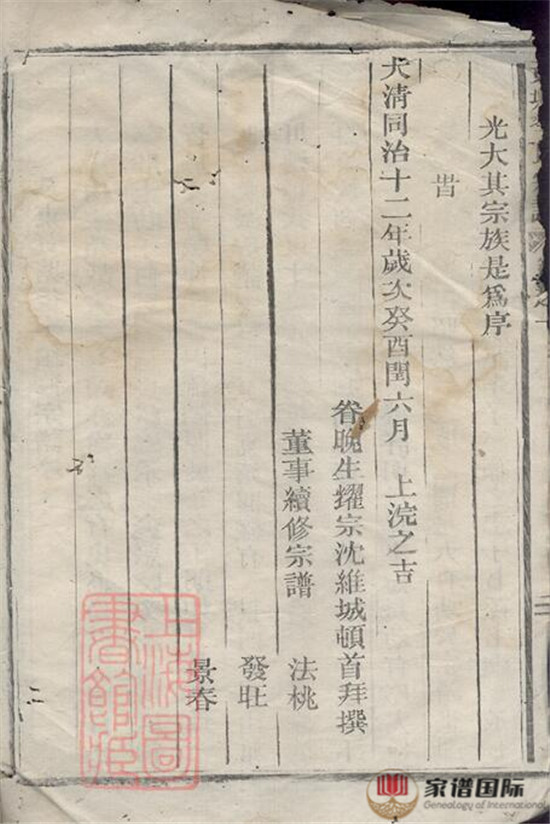 光大其宗族是爲序
旹
大清同治十二年歲次癸酉閏六月 上浣之吉
眷晚生耀宗沈維城頓首拜撰
董事續修宗譜 法桃
發旺
景春
二
上海圖書館
家谱国际
Genealogy of International